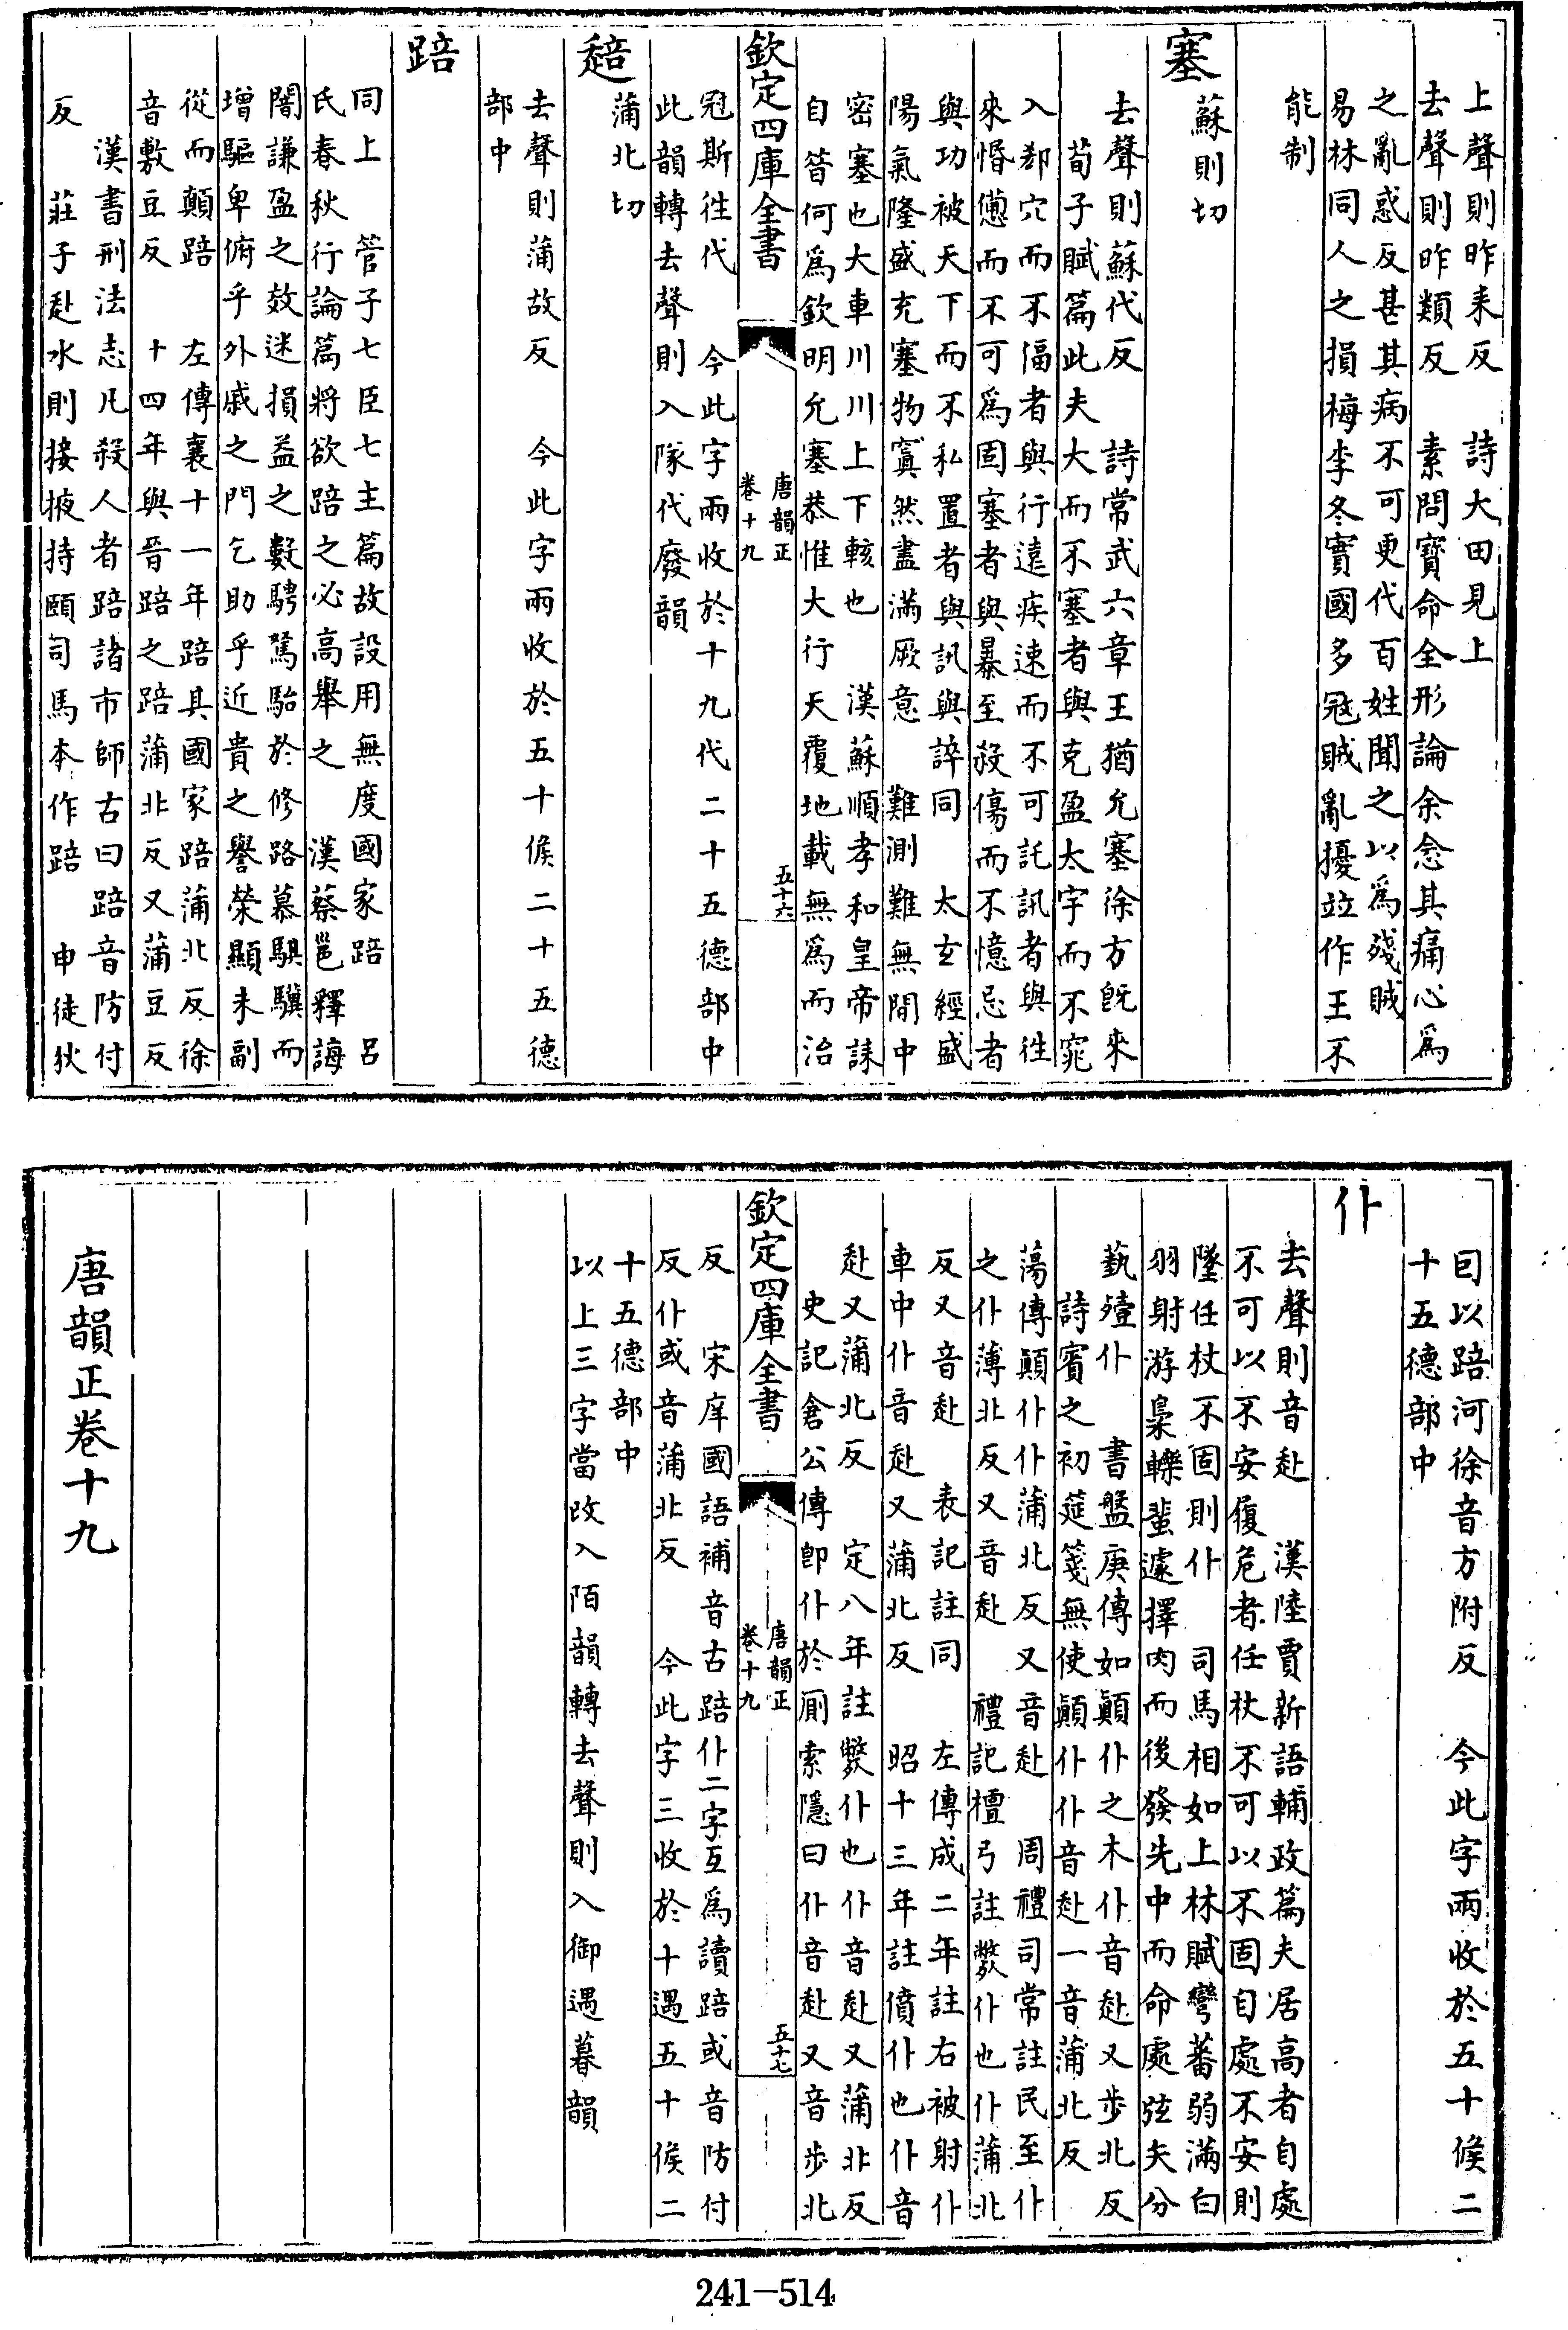 上聲則昨耒反　詩大田見上
去聲則昨類反　素問寶命全形論余念其痛心爲
之亂惑反甚其病不可更代百姓聞之以爲殘賊
易林同人之損梅李冬實國多冦賊亂擾竝作王不
能制
塞
蘇則切
去聲則蘇代反　詩常武六章王猶允塞徐方旣來
荀子賦篇此夫大而不塞者與克盈太宇而不窕
入郄穴而不偪者與行遠疾速而不可託訊者與往
來惛憊而不可爲固塞者與暴至殺傷而不憶忌者
與功被天下而不私置者與訊與誶同　太玄經盛
陽氣隆盛充塞物窴然盡滿厥意　難測難無間中
密塞也大車川川上下輆也　漢蘇順孝和皇帝誄
自笤何爲欽明允塞恭惟大行天覆地載無爲而治
欽定四庫全書
唐韻正
卷十九
五十六
冦斯往代　今此字兩收於十九代二十五德部中
此韻轉去聲則入隊代廢韻
䞳
蒲北切
去聲則蒲故反　今此字兩收於五十候二十五德
部中
踣
同上　管子七臣七主篇故設用無度國家踣　呂
氏春秋行論篇將欲踣之必高舉之　漢蔡邕釋誨
闇謙盈之效迷損益之數騁駑駘於修路慕騏驥而
增驅卑俯乎外戚之門乞助乎近貴之譽榮顯未副
從而顛踣　左傳襄十一年踣其國家踣蒲北反徐
音敷豆反　十四年與晉踣之踣蒲北反又蒲豆反
漢書刑法志凡殺人者踣諸市師古曰踣音防付
反　莊子赴水則接掖持頤司馬本作踣　申徒狄
曰以踣河徐音方附反　今此字兩收於五十候二
十五德部中
仆
去聲則音赴　漢陸賈新語輔政篇夫居高者自處
不可以不安履危者任杖不可以不固自處不安則
墜任杖不固則仆　司馬相如上林賦彎蕃弱滿白
羽射游梟轢蜚遽擇肉而後發先中而命處弦矢分
藝殪仆　書盤庚傳如顚仆之木仆音赴又步北反
詩賓之初筵箋無使顚仆仆音赴一音蒲北反
蕩傳顚仆仆蒲北反又音赴　周禮司常註民至仆
之仆薄北反又音赴　禮記檀弓註斃仆也仆蒲北
反又音赴　表記註同　左傳成二年註右被射仆
車中仆音赴又蒲北反　昭十三年註僨仆也仆音
赴又蒲北反　定八年註斃仆也仆音赴又蒲北反
史記倉公傳卽仆於厠索隱曰仆音赴又音步北
欽定四庫全書
唐韻正
卷十九
五十七
反　宋庠國語補音古踣仆二字互爲讀踣或音防付
反仆或音蒲北反　今此字三收於十遇五十候二
十五德部中
以上三字當改入陌韻轉去聲則入御遇暮韻
唐韻正卷十九
241—514